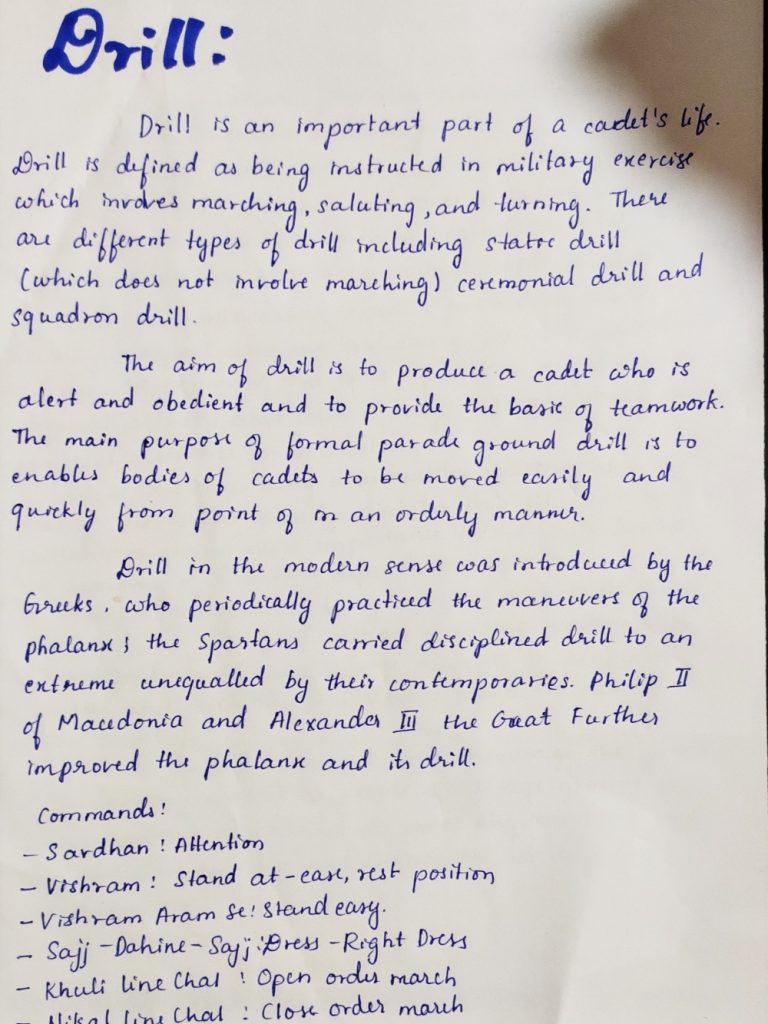 Drill:
Drill is an important part of a cadet's life.
Drill is defined as being instructed in military exercise
which involves marching, saluting, and turning. There
are different types of drill including static drill
(which does not involve marching) ceremonial drill and
squadron drill.
The aim of drill is to produce a cadet who is
alert and obedient and to provide the basic of teamwork.
The main purpose of formal parade ground drill is to
enables bodies of cadets to be moved easily and
quickly from point of in an orderly manner.
Drill in the modern sense was introduced by the
Greeks. who periodically practiced the maneuvers of the
phalanx; the Spartans carried disciplined drill to an
extreme unequalled by their contemporaries. Philip II
of Macedonia and Alexander III the Great Further
improved the phalanx and its drill.
Commands:
- Savdhan : Attention
- Vishram : Stand at-ease, rest position
- Vishram Aram Se: Stand easy.
- Sajj -Dahine-Sajj: Dress -Right Dress
- Khuli line Chal : Open order march
- Nikal line Chal : Close order march